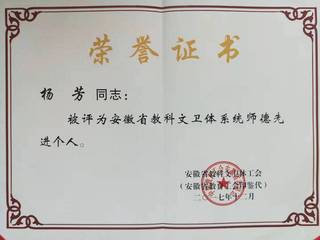 荣誉证书
杨 芳 同志:
被评为安徽省教科文卫体系统师德先
进个人。
安徽省教科文卫体工会
(安徽省教育工会印鉴代)
二〇一七年十二月